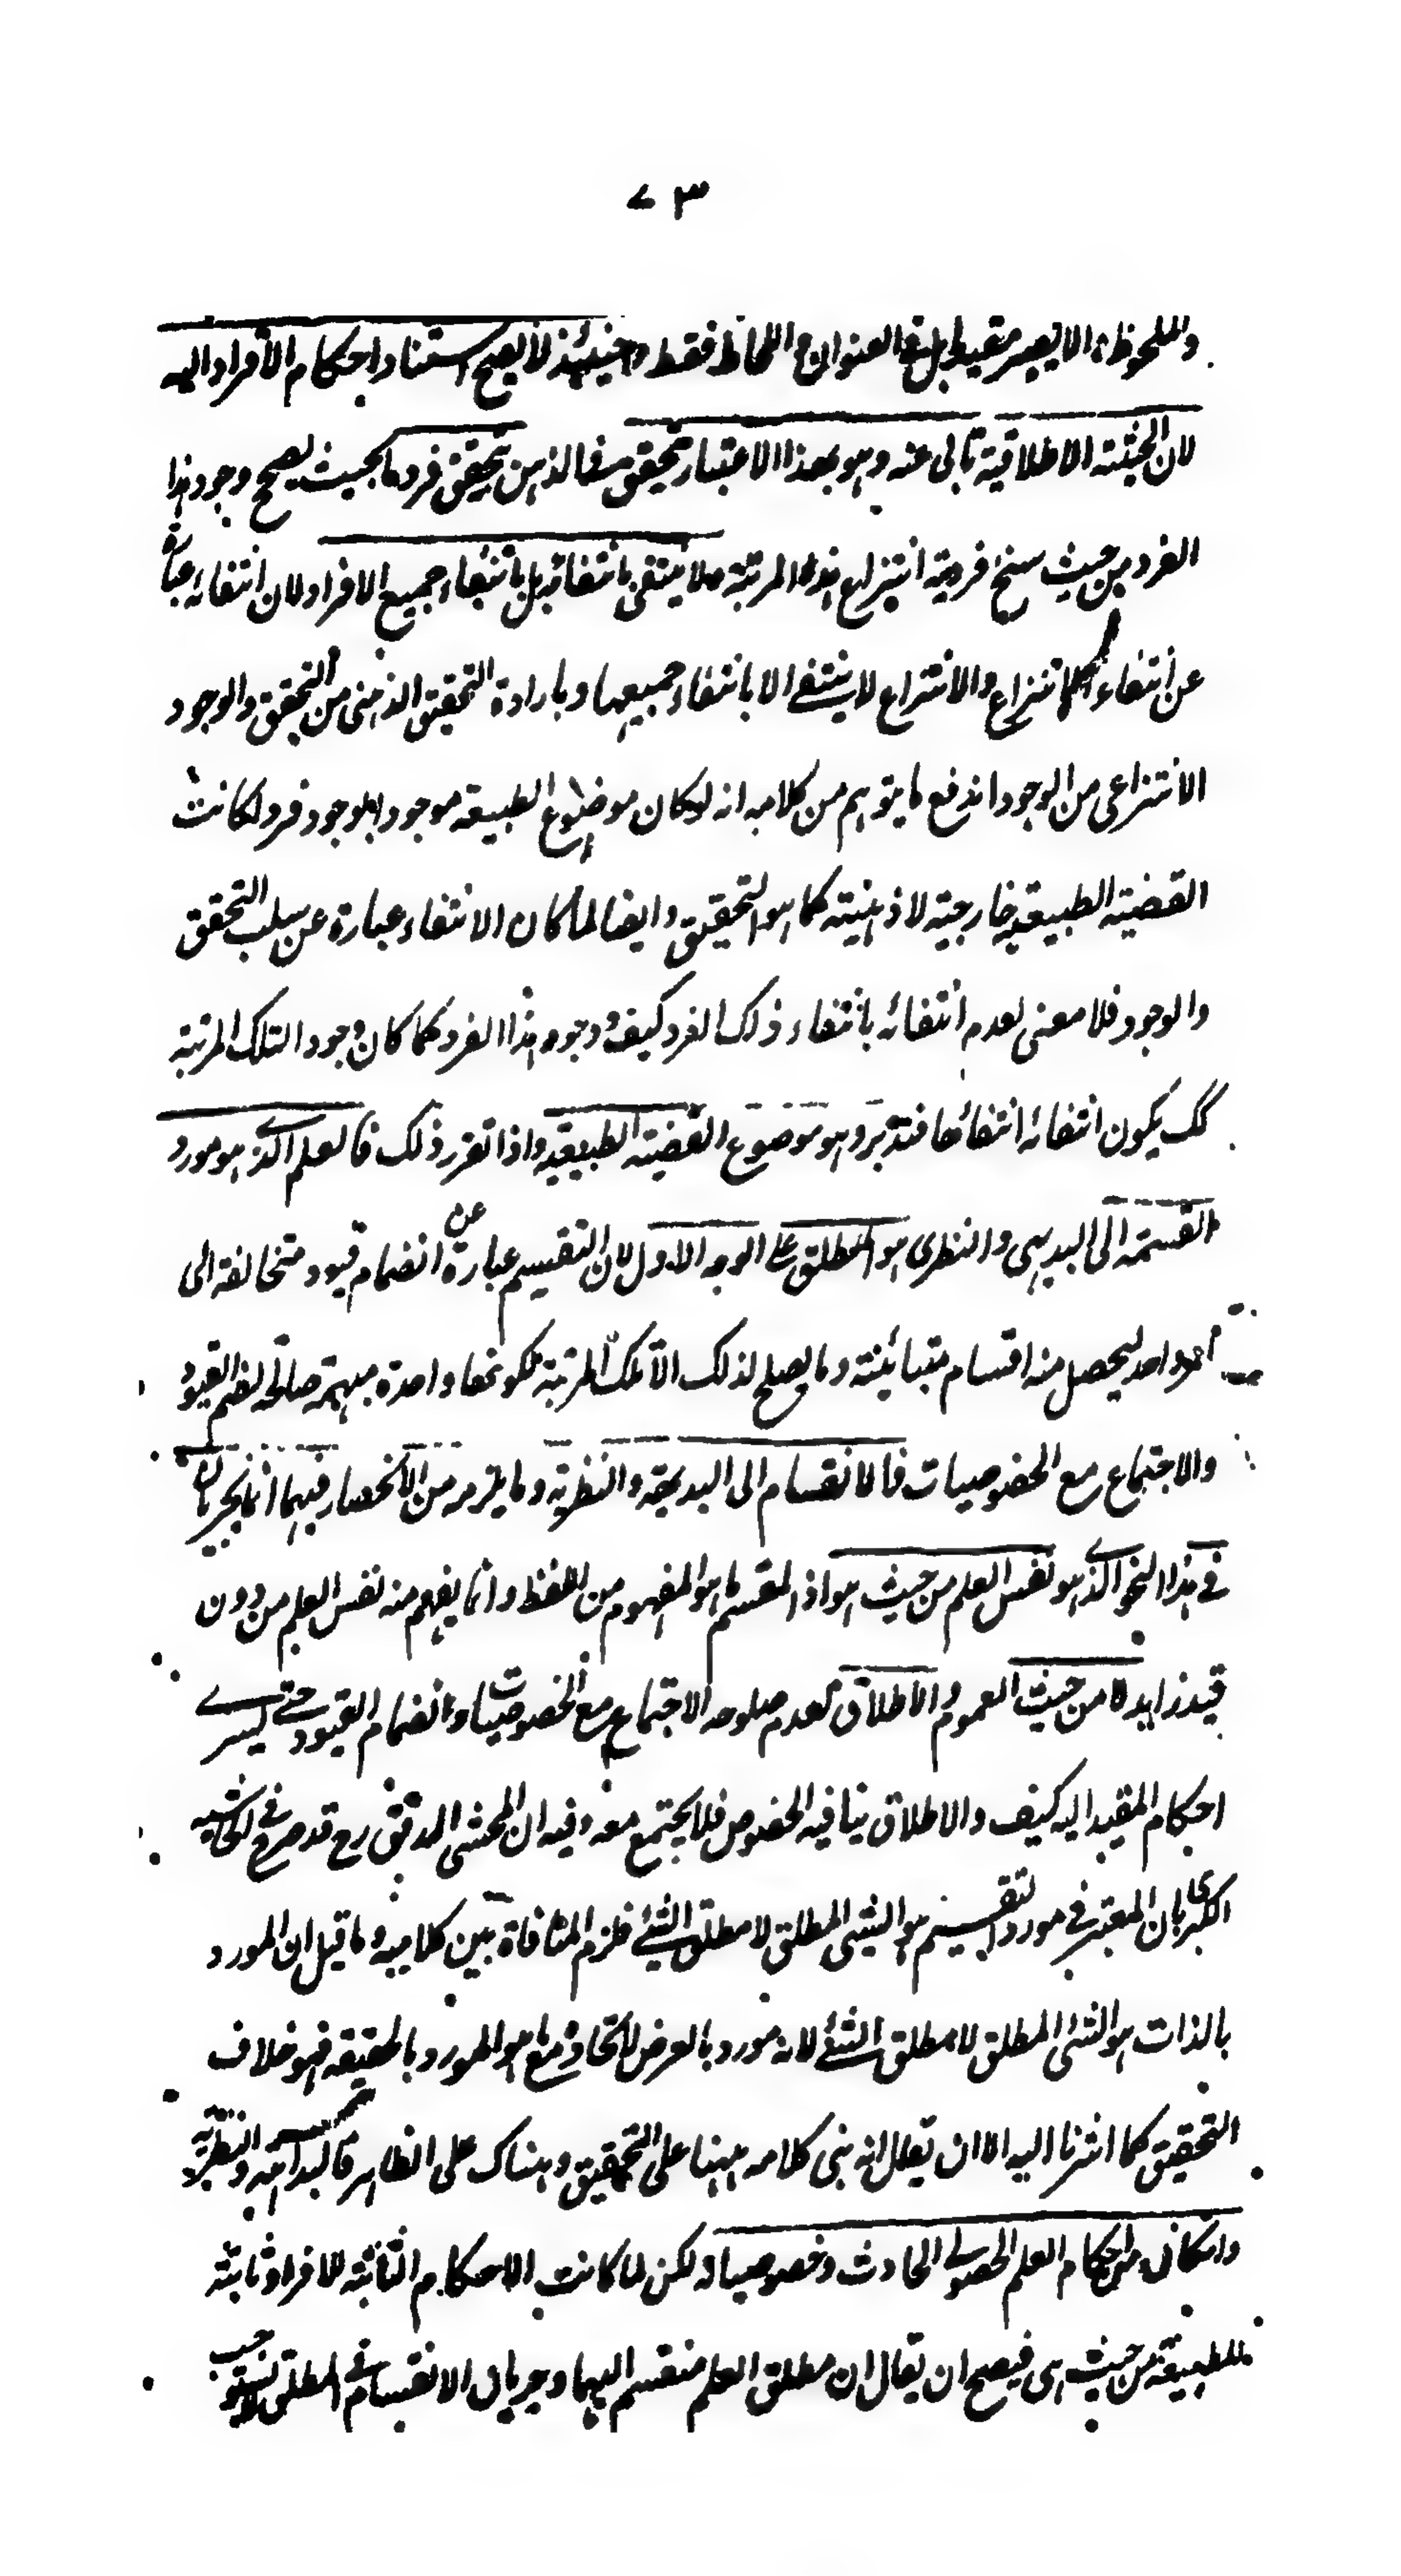 ٧٣
والملحوظ والا يصير مقيدا بل في العنوان واللحاظ فقط وحينئذ لا يصح استناد احكام الأفراد اليه
لان الحيثية الاطلاقية تأبى عنه وهو بهذا الاعتبار تحقق في الذهن بتحقق فرد ما بحيث يصح وجود هذا
الفرد من حيث سنخ فردية انتزاع هذه المرتبة ولا ينتفى بانتفائه بل بانتفاء جميع الافراد لان انتفاءه عبارة
عن انتفاء الانتزاع والانتزاع لا ينتفي الا بانتفاء جميعها وبارادة التحقق الذهني من التحقق والوجود
الانتزاعى من الوجود اندفع ما يتوهم من كلامه انه لو كان موضوع الطبيعة موجودا بوجود فرد لكانت
القضية الطبيعية خارجية لا ذهنية كما هو التحقيق وايضا لما كان الانتفاء عبارة عن سلب التحقق
والوجود فلا معنى لعدم انتفائه بانتفاء ذلك الفرد كيف ووجود هذا الفرد كما كان وجود التلك المرتبة
كك يكون انتفائه انتفائها فتدبر وهو موضوع القضية الطبيعية واذا تقرر ذلك فالعلم الذي هو مورد
القسمة الى البديهى والنظرى هو المطلق على الوجه الاول لان التقسيم عبارة عن انضمام قيود متخالفة الى
امر واحد ليحصل منه اقسام متبائنة وما يصلح لذلك الا تلك المرتبة لكونها واحدة مبهمة صالحة لضم القيود
والاجتماع مع الخصوصيات فالانقسام الى البديهية والنظرية وما يلزمه من الانحصار فيهما انما يجريان
في هذا النحو الذي هو نفس العلم من حيث هو اذ المقسم هو المفهوم من اللفظ وانما يفهم منه نفس العلم من دون
قيد زايد لا من حيث العموم والاطلاق لعدم صلوحه الاجتماع مع الخصوصيات وانضمام القيود حتى يسري
احكام المقيد اليه كيف والاطلاق ينافيه الخصوص فلا يجتمع معه وفيه ان المحشى المدقق رح قد صرح في الحاشية
الكبرى بان المعتبر في مورد التقسيم هو الشيء المطلق لا مطلق الشئ فلزم المنافاة بين كلاميه وما قيل ان المورد
بالذات هو الشئ المطلق لا مطلق الشئ لانه مورد بالعرض لاتحاده مع ما هو المورد بالحقيقة فهو خلاف
التحقيق كما اشرنا اليه الا ان يقال انه بنى كلامه ههنا على التحقيق وهناك على الظاهر فالبداهة والنظرية
وان كانا من احكام العلم الحصولي الحادث وخصوصياته لكن لما كانت الاحكام الثابتة للافراد ثابتة
للطبيعة من حيث هى فيصح ان يقال ان مطلق العلم منقسم اليهما وجريان الانقسام في المطلق لا يستوجب